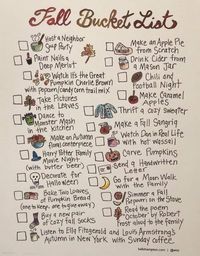 Fall Bucket List
Host a Neighbor
Soup Party
Paint Nails a
Deep Merlot
Watch It's the Great
Pumpkin Charlie Brown
with popcorn/candy corn trail mix
Take Pictures
in the Leaves
Dance to
Monster Mash
in the kitchen
Make an Autumn
floral centerpiece
Harry Potter Family
Movie Night
(with butter beer)
Decorate for
Halloween
Bake Two Loaves
of Pumpkin Bread
(one to keep, one to give away)
Buy a new pair
of cozy fall socks
Make an Apple Pie
from Scratch
Drink Cider from
a Mason Jar
Chili and
Football Night
Make Caramel
Apples
Thrift a cozy Sweater
Make a Fall Sangria
Watch Dan in Real Life
with hot wassail
Carve Pumpkins
Send a Handwritten
Letter
Go for a Moon Walk
with the Family
Simmer a Fall
Potpourri on the Stove
Read the poem
October by Robert
Frost aloud to the family
Listen to Ella Fitzgerald and Louis Armstrong's
Autumn in New York with Sunday coffee